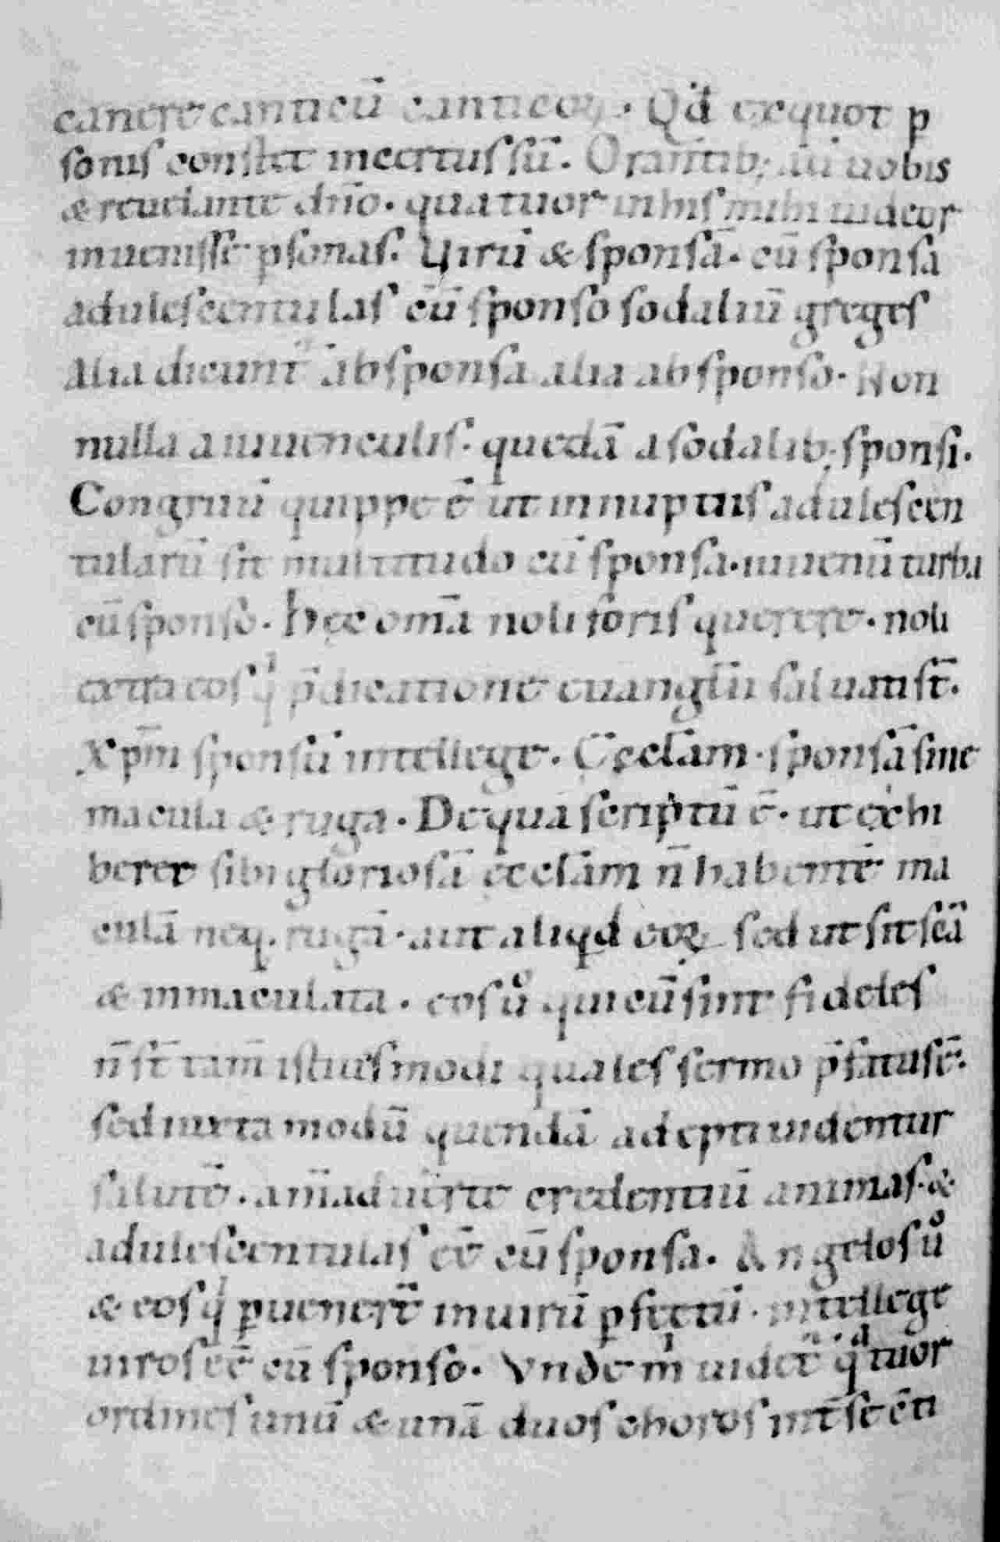 canere canticū canticoꝝ. Qd̄ ex quot ꝑ
sonis constet incertus sū. Orantib; aū uobis
& reuelante dn̄o. quatuor in his mihi uideor
inuenisse ꝑsonas. Uirū & sponsā. cū sponsa
adulescentulas cū sponso sodaliū greges
Alia dicunt̄ ab sponsa alia ab sponso. Non
nulla a iuuenculis. quedā a sodalib; sponsi.
Congruū quippe ē ut in nuptiis adulescen
tularū sit multitudo cū sponsa. iuuenū turba
cū sponso. Hęc om̄a noli foris querere. noli
extra eos q̇ p̄dicatione euangl̄ii saluati st̄.
Xp̄m sponsū intellege. Ęccl̄am sponsā sine
macula & ruga. De qua scriptū ē. ut exhi
beret sibi gloriosā ęccl̄am n̄ habentē ma
culā neq. rugā. aut aliqd eoꝝ sed ut sit sc̄a
& inmaculata. eos ů qui cū sint fideles
n̄ st̄ tam̄ istiusmodi quales sermo p̄fatus ē.
sed iuxta modū quendā adepti uidentur
salutē. anīaduerte credentiū animas. &
adulescentulas eē cū sponsa. Angelos ů
& eos q̇ ꝑuenert̄ in uirū ꝑfectū. intellege
uiros eē cū sponso. Vnde m̍ uidet̄ quattuor
ordines unū & unā duos choros int̄ se cn̄ti